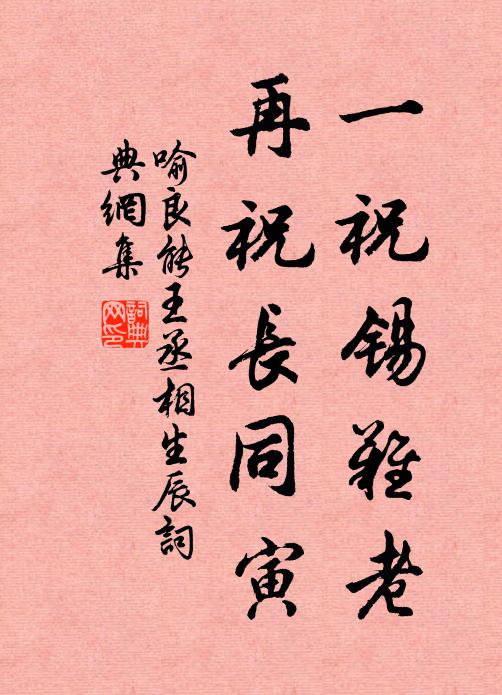 一祝锡難老
再祝長同寅
喻良能王丞相生辰詞
典網集
詞典
网印